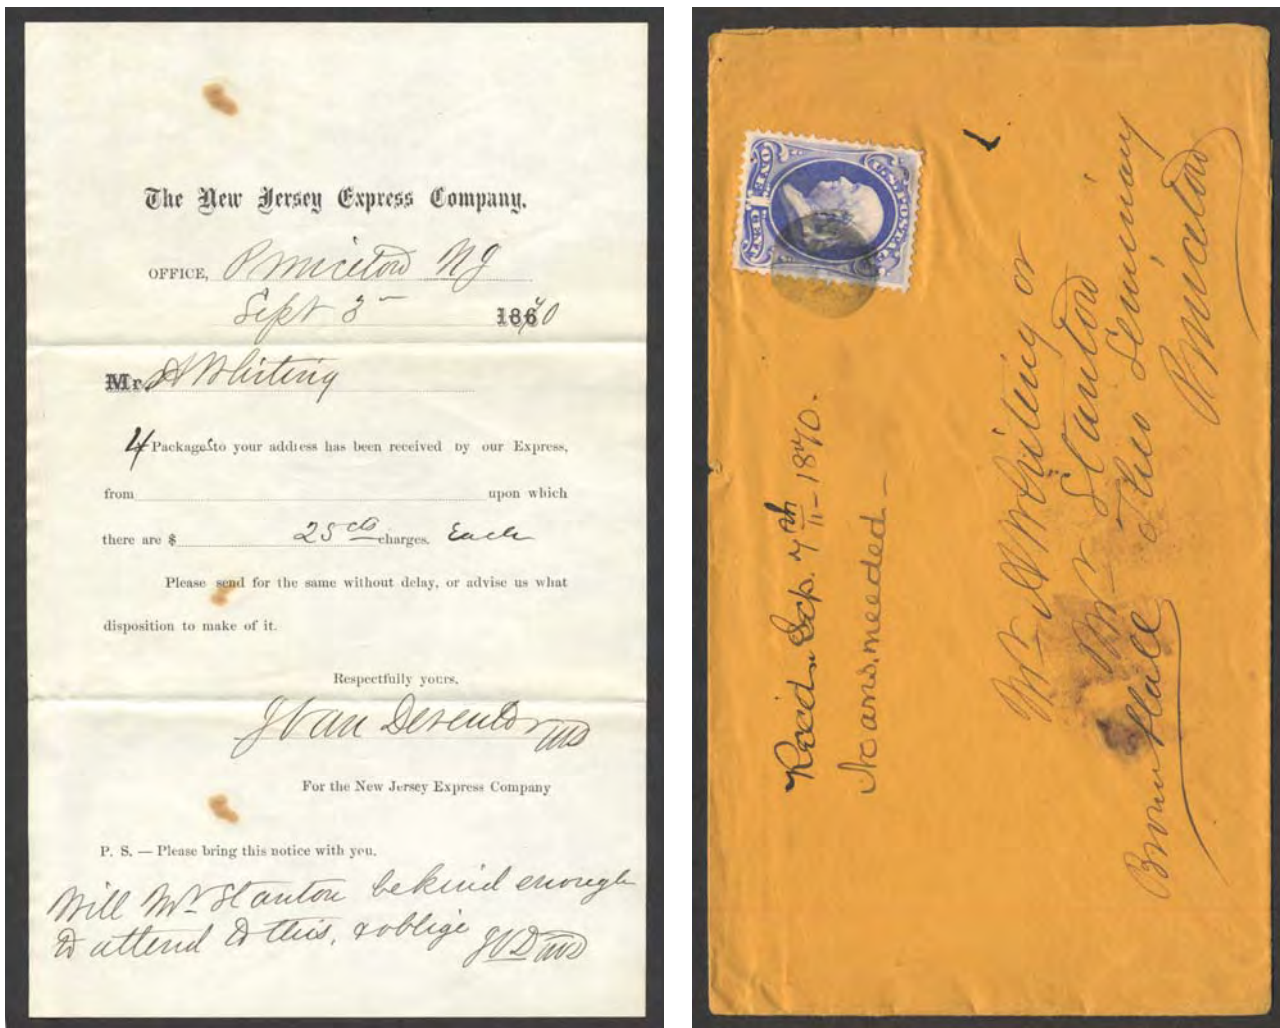 The New Jersey Express Company.
OFFICE, Princeton NJ
Sept 3 1870
Mr. A Whiting
4 Packages to your address has been received by our Express,
from upon which
there are $ 25 cts charges. Each
Please send for the same without delay, or advise us what
disposition to make of it.
Respectfully yours,
J Van Deventer
For the New Jersey Express Company
P. S. — Please bring this notice with you.
Will Mr Stanton be kind enough
to attend to this, & oblige JVD
U.S. POSTAGE
ONE 1 CENT
Mr A Whiting or
Mr Stanton
Theo Seminary
Brown Hall Princeton
Recd. Sep. 7th 1870.
No ans. needed